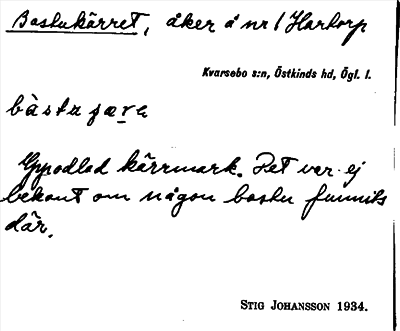 Bastukärret, åker å nr 1 Hartorp
Kvarsebo s:n, Östkinds hd, Ögl. l.
bàstu ꞩære
Uppodlad kärrmark. Det var ej
bekant om någon bastu funnits
där.
STIG JOHANSSON 1934.